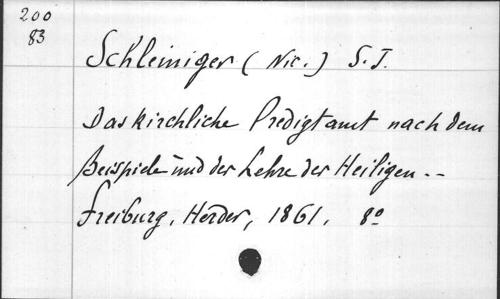 200
83
Schleiniger (Nic.) S.J.
Das kirchliche Predigtamt nach dem
Beispiele und der Lehre der Heiligen..
Freiburg, Herder, 1861. 8º